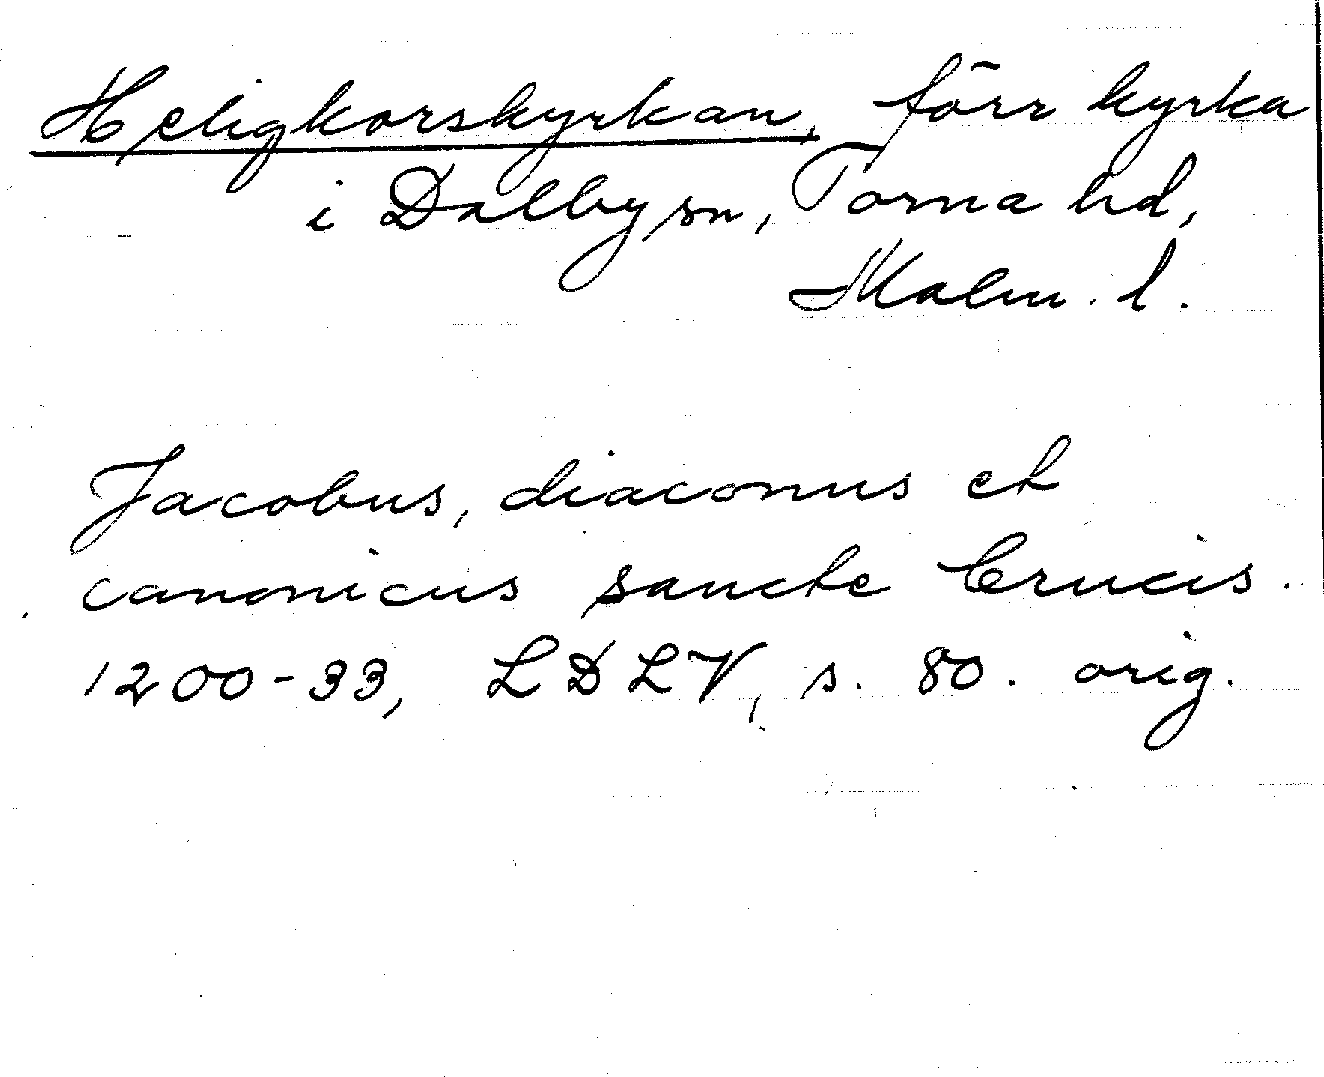 Heligkorskyrkan, förr kyrka
i Dalby sn, Torna hd,
Malm. l.
Jacobus, diaconus et
canonicus sancte Crucis.
1200-33, LDLV, s. 80. orig.